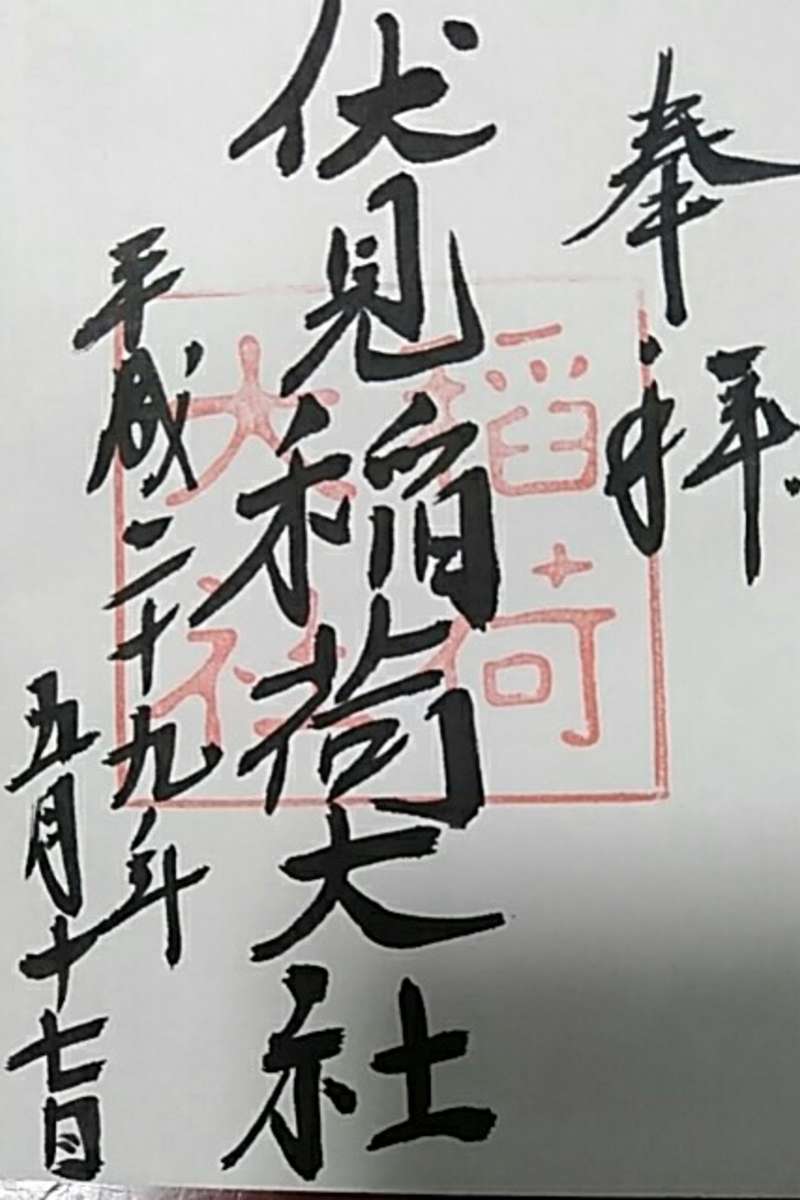 奉拝
伏見稲荷大社
稲荷
大社
平成二十九年
五月十七日